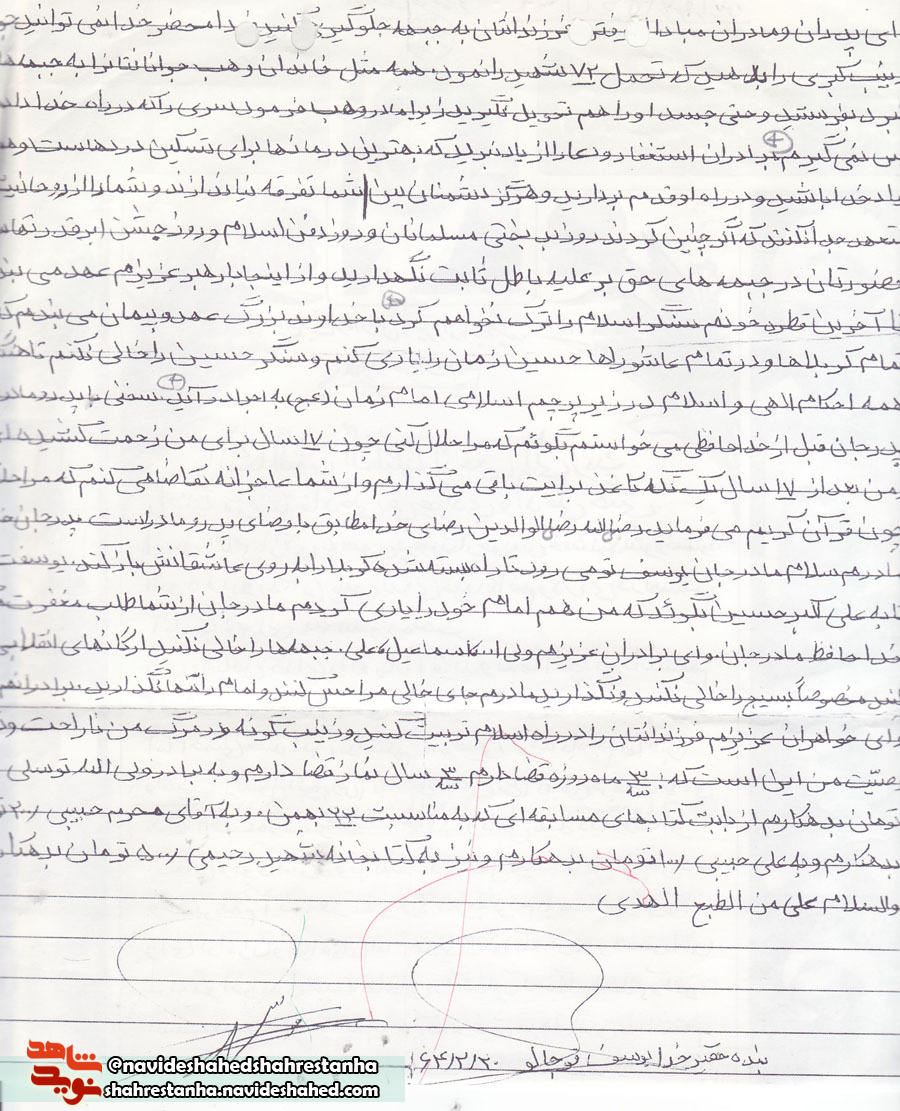 ای پدران و مادران مبادا از رفتن فرزندانتان به جبهه جلوگیری کنید فردا محضر خدا نمی توانید جو
زینب کبری را بدهید که تحمل ۷۲ شهید را نمود. همه مثل خاندان وهب جوانانتانرا به جبهه ها
نبرد بفرستید و حتی جسد او را هم تحویل نگیرید زیرا مادر وهب فرمود سری را که در راه خدا داد
پس نمی گیرم برادران استغفار و دعا را از یاد نبرید که بهترین درمانها برای تسکین دردهاست وه
یاد خدا باشید و در راه او قدم بردارید و هرگز دشمنان بین شما تفرقه نیاندازند و شما را از روحانیت
متعهد جدا نکنند که اگر چنین کردند روز بدبختی مسلمانان و روز دفن اسلام و روز جشن ابرقدرتهاست
حضورتان در جبهه های حق بر علیه باطل ثابت نگهدارید و از اینجا با رهبر عزیزم عهد می بند
تا آخرین قطره خونم سنگر اسلام را ترک نخواهم کرد با خداوند بزرگ عهد و پیمان می بندم که
تمام کربلاها و در تمام عاشوراها حسین زمان را یاری کنم و سنگر حسین را خالی نکنم تا هنگ
همه احکام الهی و اسلام در زیر پرچم اسلامی امام زمان (عج) به اجرا در آید. سخنی با پدر و مادر
پدر جان قبل از خداحافظی می خواستم بگویم که مرا حلال کنی چون ۱۷ سال برای من زحمت کشیده ای
و من بعد از ۱۷ سال یک تکه کاغذ برایت باقی می گذارم و از شما عاجزانه تقاضا می کنم که مرا حلا
چون قرآن کریم می فرماید رضی الله و رضی الوالدین رضای خدا مطابق با رضای پدر و مادر است پدر جان خ
مادرم سلام مادر جان یوسف تو می رود تا راه بسته شده کربلا را به روی عاشقانش باز کند. یوسف
تا به علی اکبر حسین بگوئد که من هم امام خود را یاری کردم مادر جان از شما طلب مغفرت
خداحافظ مادر جان. و ای برادران عزیزم ولی الله اسماعیل علی. جبهه ها را خالی نکنید ارگانهای انقلابی
کنید مخصوصاً بسیج را خالی نکنید و نگذارید مادرم جای خالی مرا حس کنند و امام را تنها نگذارید. برادرانم
و ای خواهران عزیزم فرزندانتان را در راه اسلام تربیت کنید و زینب گونه و در مرگ من ناراحت و
وصیت من این است که: ۳ ماه روزه قضا دارم ۳ سال نماز قضا دارم و به برادر ولی الله توسلی
تومان بدهکارم از بابت کتابهای مسابقه ای که به مناسبت ۲۲ بهمن. و به آقای محرم حبیبی ۲۰۰ تو
بدهکارم و به علی حبیبی ۱۰۰ تومان بدهکارم و نیز به کتابخانه شهید رحیمی ۵۰۰ تومان بدهکار
والسلام علی من الطبع الهدی
بنده حقیر خدا یوسف قوجالو ۶۴/۲/۲۰
شاهد
نوید
@navideshahedshahrestanha
shahrestanha.navideshahed.com